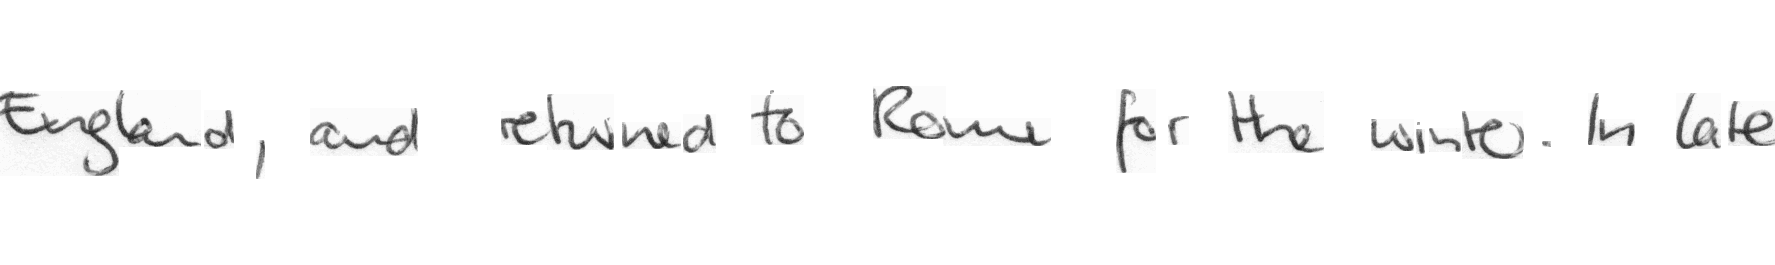 England, and returned to Rome for the winter. In late